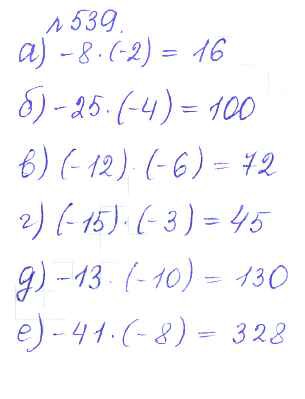 №539.
а) -8·(-2) = 16
б) -25·(-4) = 100
в) (-12)·(-6) = 72
г) (-15)·(-3) = 45
д) -13·(-10) = 130
е) -41·(-8) = 328